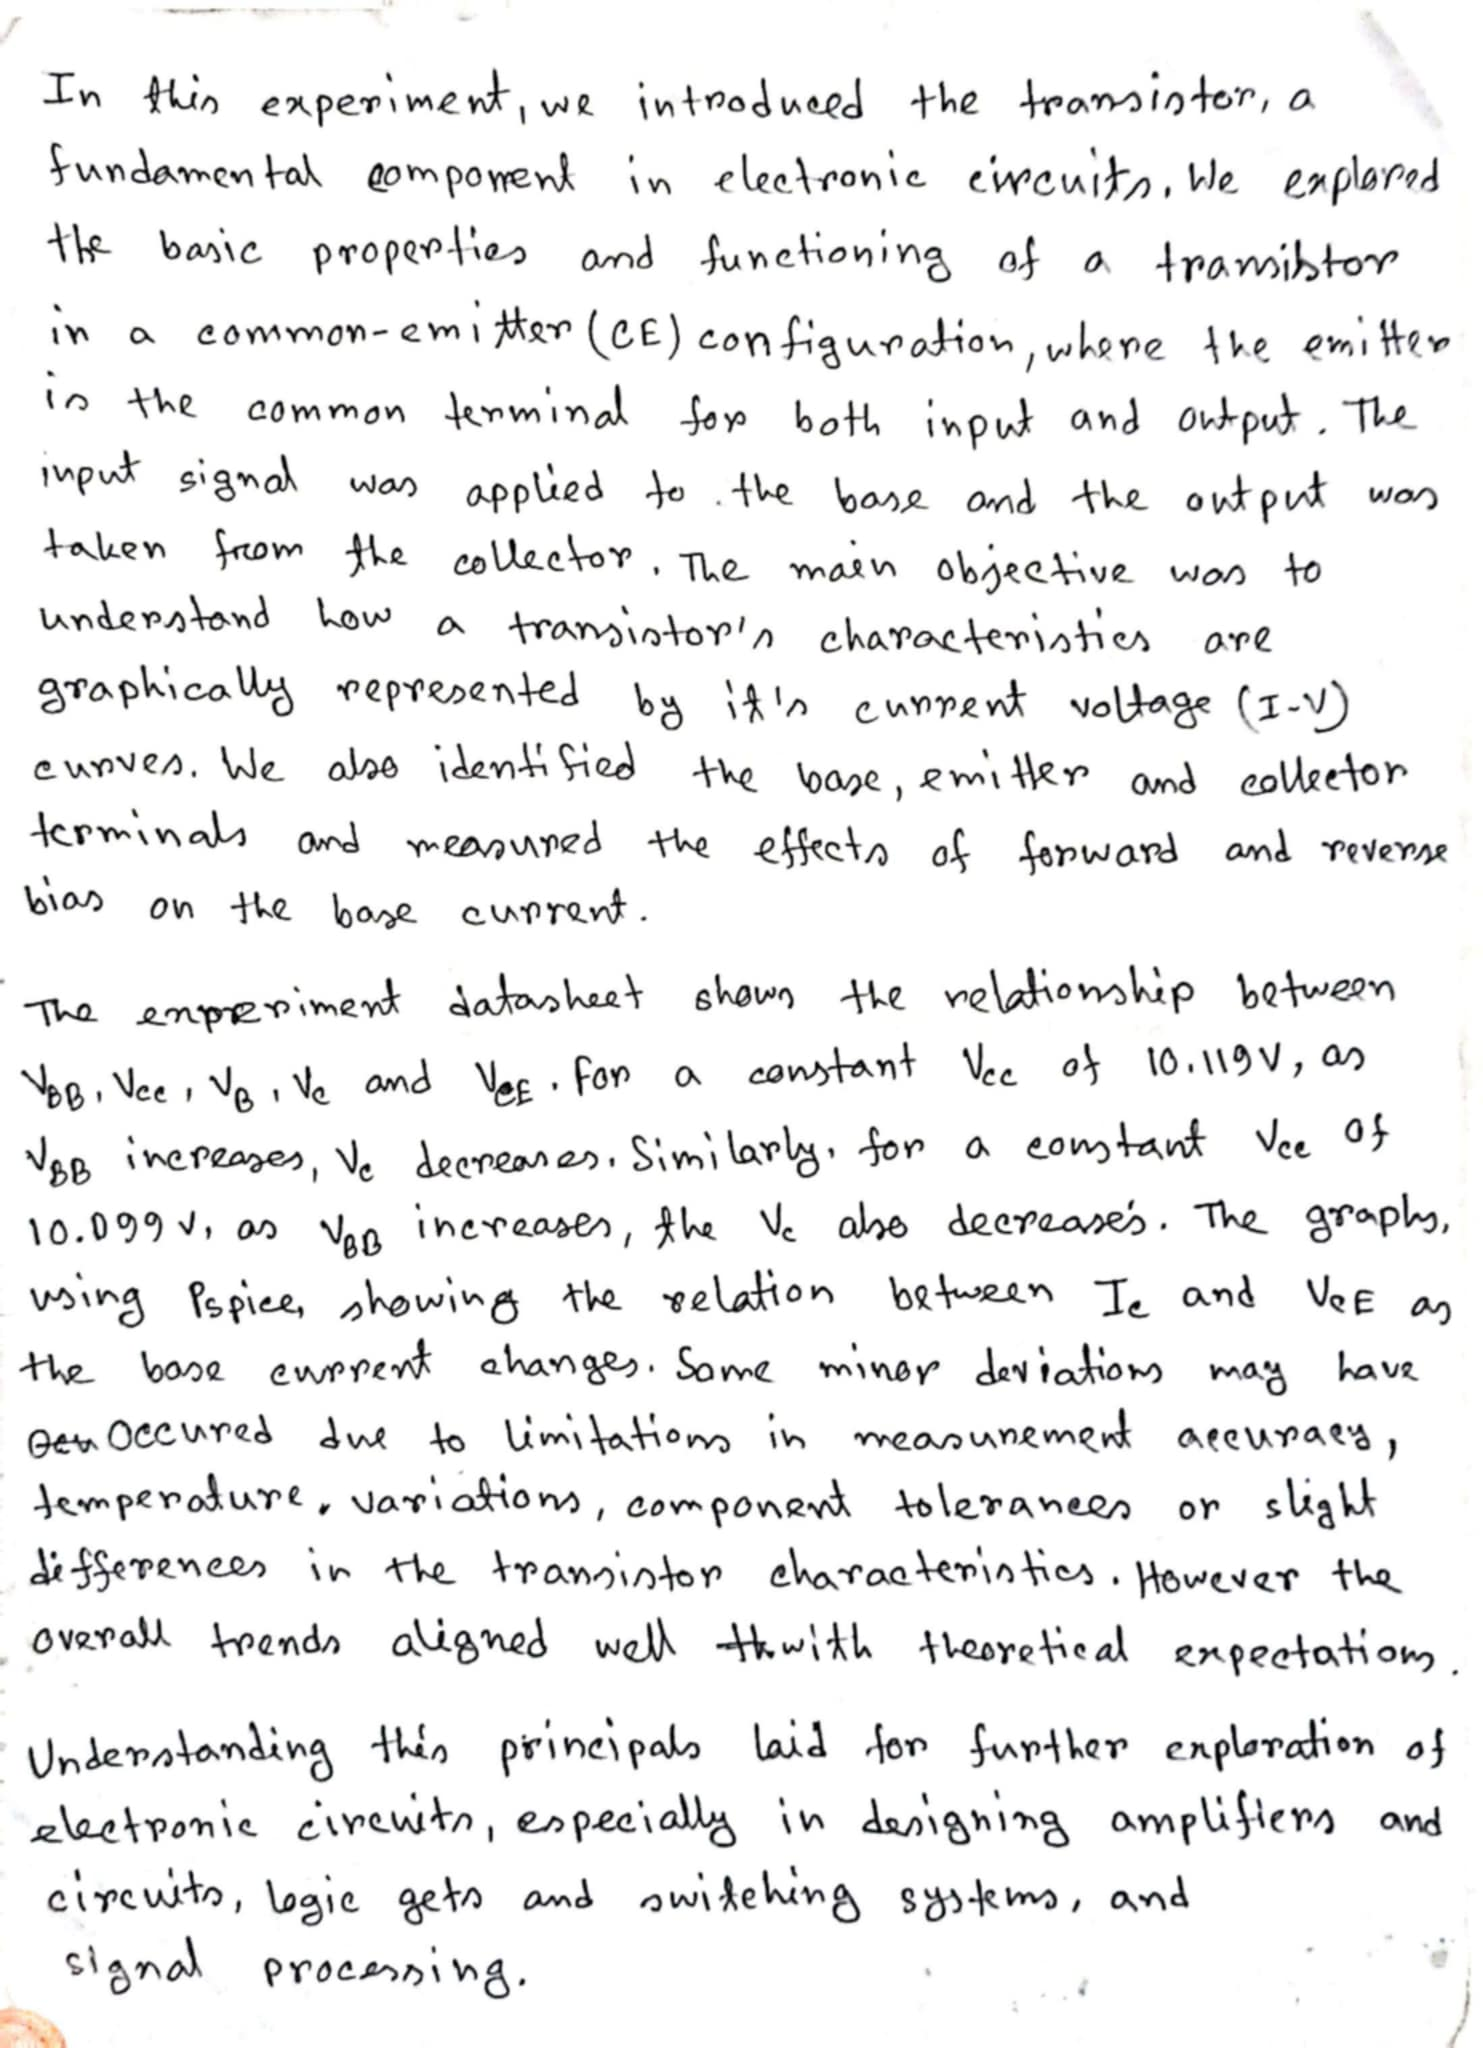 In this experiment, we introduced the transistor, a
fundamental component in electronic circuits. We explored
the basic properties and functioning of a transistor
in a common-emitter (CE) configuration, where the emitter
is the common terminal for both input and output. The
input signal was applied to the base and the output was
taken from the collector. The main objective was to
understand how a transistor's characteristics are
graphically represented by it's current voltage (I-V)
curves. We also identified the base, emitter and collector
terminals and measured the effects of forward and reverse
bias on the base current.
The experiment datasheet shows the relationship between
VBB, Vcc, VB, Vc and VCE. For a constant Vcc of 10.119V, as
VBB increases, Vc decreases. Similarly, for a constant Vcc of
10.099 V, as VBB increases, the Vc also decreases. The graphs,
using Pspice, showing the relation between Ic and VCE as
the base current changes. Some minor deviations may have
Occured due to limitations in measurement accuracy,
temperature, variations, component tolerances or slight
differences in the transistor characteristics. However the
overall trends aligned well with theoretical expectations.
Understanding this principals laid for further exploration of
electronic circuits, especially in designing amplifiers and
circuits, logic gets and switching systems, and
signal processing.